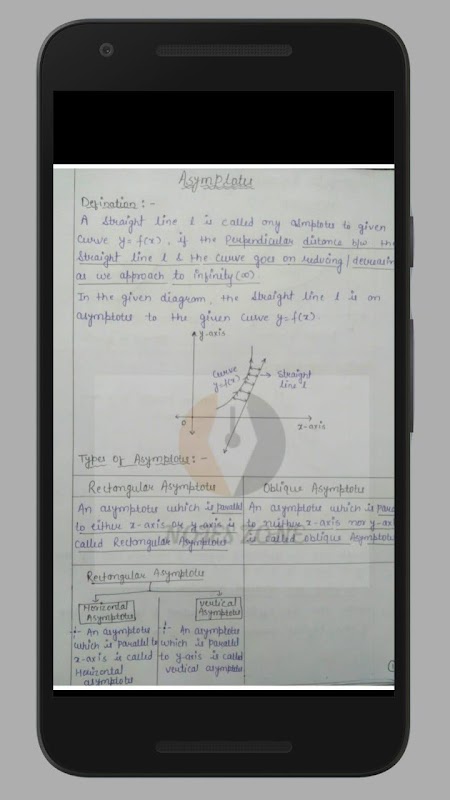 Asymptotes
Defination :-
A straight line l is called any asmptotes to given
curve y=f(x), if the perpendicular distance b/w the
straight line l & the curve goes on reducing/decreasin
as we approach to infinity (∞).
In the given diagram, the straight line l is an
asymptotes to the given curve y=f(x).
y-axis
curve
y=f(x)
straight
line l
O
x-axis
Types of Asymptotes :-
Rectangular Asymptote
Oblique Asymptote
An asymptotes which is parallel
to either x-axis or y-axis is
called Rectangular Asymptote
An asymptotes which is para
to neither x-axis nor y-ax
is called oblique Asymptote
NOTES ZONE
Rectangular Asymptote
Horizontal
Asymptotes
Vertical
Asymptote
An asymptotes
which is parallel to
x-axis is called
Horizontal
asymptote
An asymptotes
which is parallel
to y-axis is called
vertical asymptote